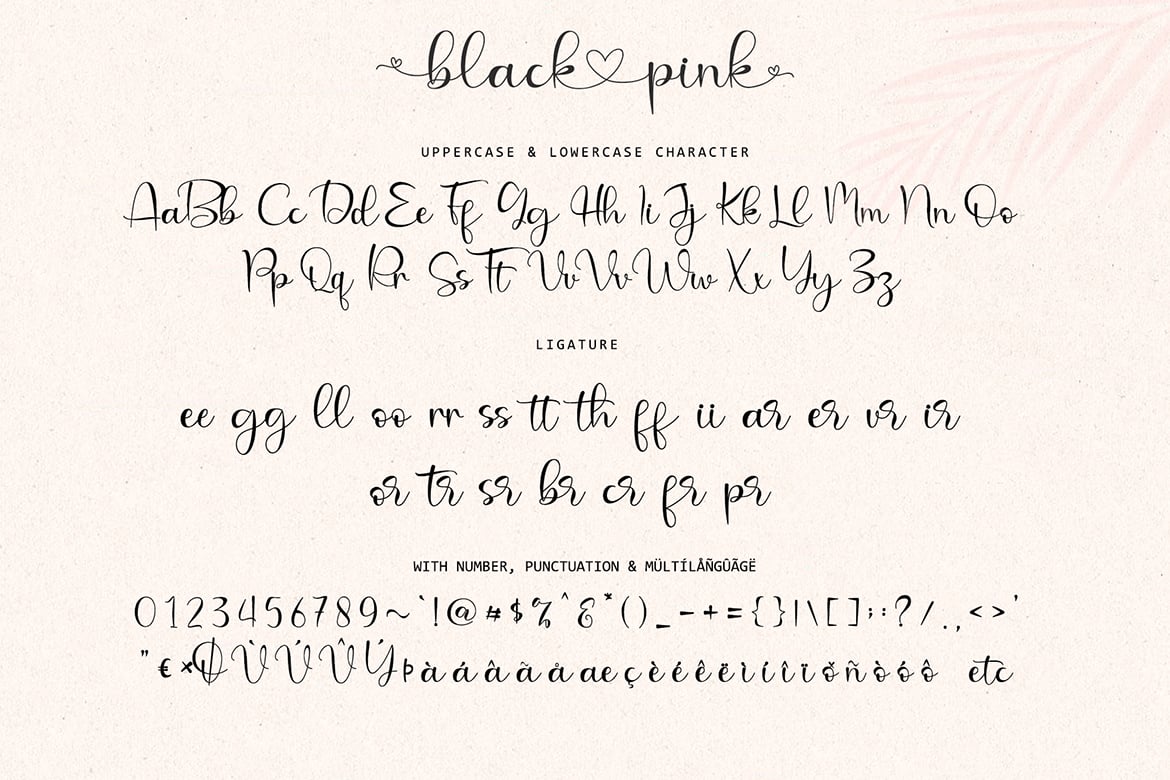 black♡pink
UPPERCASE & LOWERCASE CHARACTER
AaBb Cc Dd Ee Ff Gg Hh Ii Jj Kk Ll Mm Nn Oo
Pp Qq Rr Ss Tt Uu Vv Ww Xx Yy Zz
LIGATURE
ee gg ll oo rr ss tt th ff ii ar er vr ir
or tr sr br cr fr pr
WITH NUMBER, PUNCTUATION & MÜLTÍLÅÑGÛÃGË
0123456789~`!@#$%^&*()_-+={}|\[];:?/.,<>'
"€×ØÙÚÛÝÞàáâãåaeçèéêëìíîïðñòóô etc